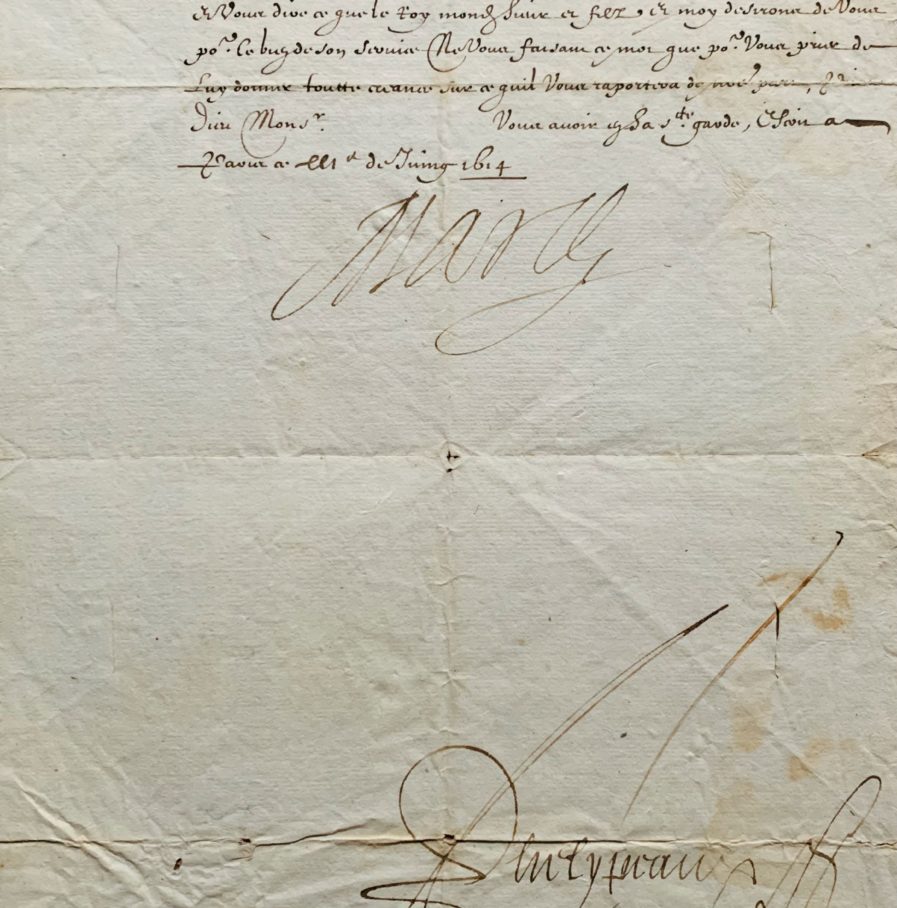 et Vous dire ce que le Roy mond. sieur et filz, et moy desirons de Vous
po.r le bien de son service Ne Vous faisant ce mot que po.r Vous prier de
luy donner toutte creance sur ce quil Vous raportera de part,
Dieu Mons.r Vous avoir en sa s.te garde, Escrit a
Paris ce de Juing 1614
Marie
Phelypeaux